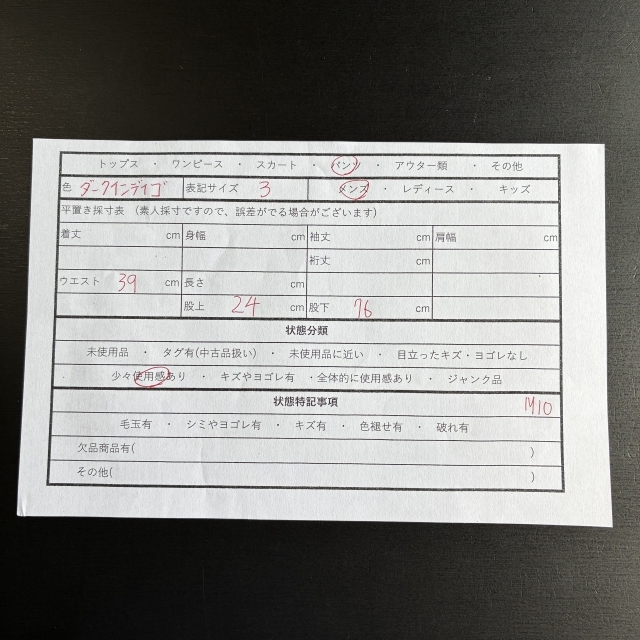 トップス ・ ワンピース ・ スカート ・ パンツ ・ アウター類 ・ その他
色 ダークインディゴ 表記サイズ 3 メンズ ・ レディース ・ キッズ
平置き採寸表 （素人採寸ですので、誤差がでる場合がございます）
着丈 cm 身幅 cm 袖丈 cm 肩幅 cm
裄丈 cm
ウエスト 39 cm 長さ cm
股上 24 cm 股下 76 cm
状態分類
未使用品 ・ タグ有(中古品扱い) ・ 未使用品に近い ・ 目立ったキズ・ヨゴレなし
少々使用感あり ・ キズやヨゴレ有 ・全体的に使用感あり ・ ジャンク品
状態特記事項 M10
毛玉有 ・ シミやヨゴレ有 ・ キズ有 ・ 色褪せ有 ・ 破れ有
欠品商品有( )
その他( )